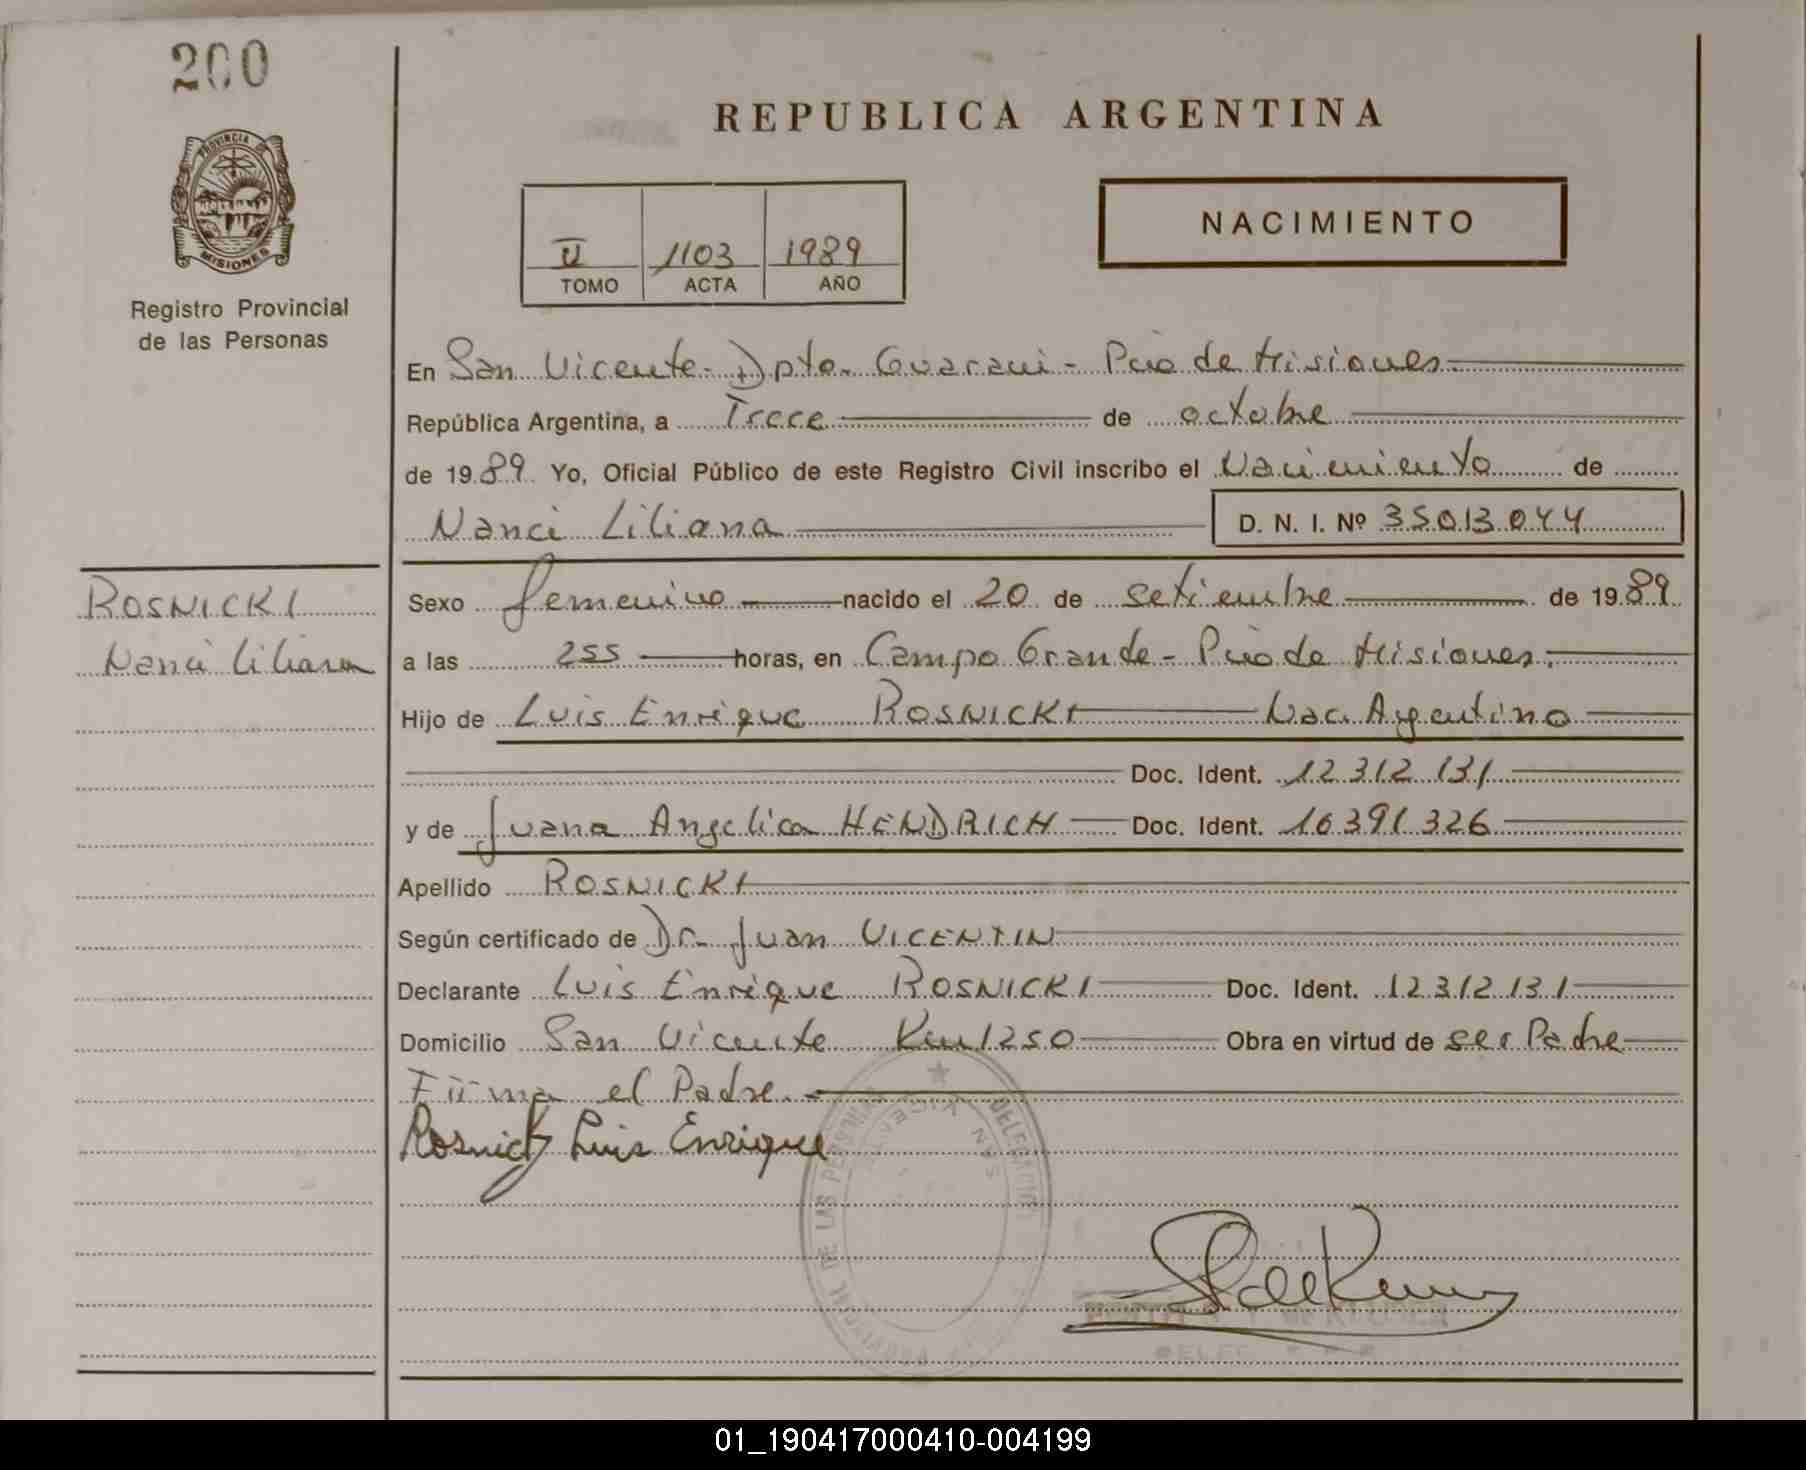 200
REPUBLICA ARGENTINA
PROVINCIA DE
MISIONES
Registro Provincial
de las Personas
NACIMIENTO
II 1103 1989
TOMO ACTA AÑO
En San Vicente - Dpto. Guarani - Pcia de Misiones
República Argentina, a Trece de octubre
de 1989 Yo, Oficial Público de este Registro Civil inscribo el Nacimiento de
Nanci Liliana D. N. I. Nº 35013044
ROSNICKI
Nanci Liliana
Sexo femenino nacido el 20 de setiembre de 1989
a las 255 horas, en Campo Grande - Pcia de Misiones.
Hijo de Luis Enrique ROSNICKI Nac. Argentino
Doc. Ident. 12312131
y de Juana Angelica HENDRICH Doc. Ident. 16391326
Apellido ROSNICKI
Según certificado de Dr. Juan VICENTIN
Declarante Luis Enrique ROSNICKI Doc. Ident. 12312131
Domicilio San Vicente Km 1250 Obra en virtud de ser Padre
Firma el Padre.
Rosnicki Luis Enrique
DELEGACION
SAN VICENTE
PROVINCIAL DE LAS PERSONAS
de KLUSER
01_190417000410-004199